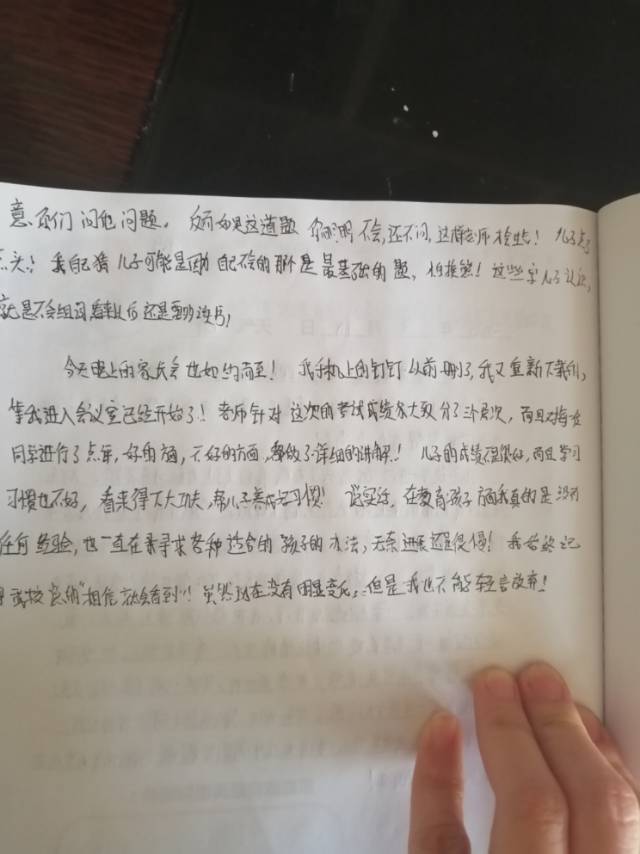 意,不们问他问题。反而如果这道题 你明明不会,还不问,这样老师 ! 儿子点了
点头!我自己猜儿子可能是因为自己不会的那个是最基础的题,怕挨熊!这些字儿子认识,
就是不会组词,看来以后还是要多读书!
今天晚上的家长会也如约而至!我手机上的钉钉以前删了,我又重新下载的,
等我进入会议室已经开始了!老师针对这次的考试成绩大致分了三个层次,而且对每位
同学进行了点评,好的方面,不好的方面,都做了详细的讲解!儿子的成绩不是很好,而且学习
习惯也不好,看来得下大功夫,帮儿子养成学习习惯!说实话,在教育孩子方面我真的是没有
任何经验,也一直在寻求各种适合的孩子的办法,无奈进展还是很慢!我始终记
得我校 "相信就会看到"!虽然现在没有明显变化,但是我也不能轻言放弃!